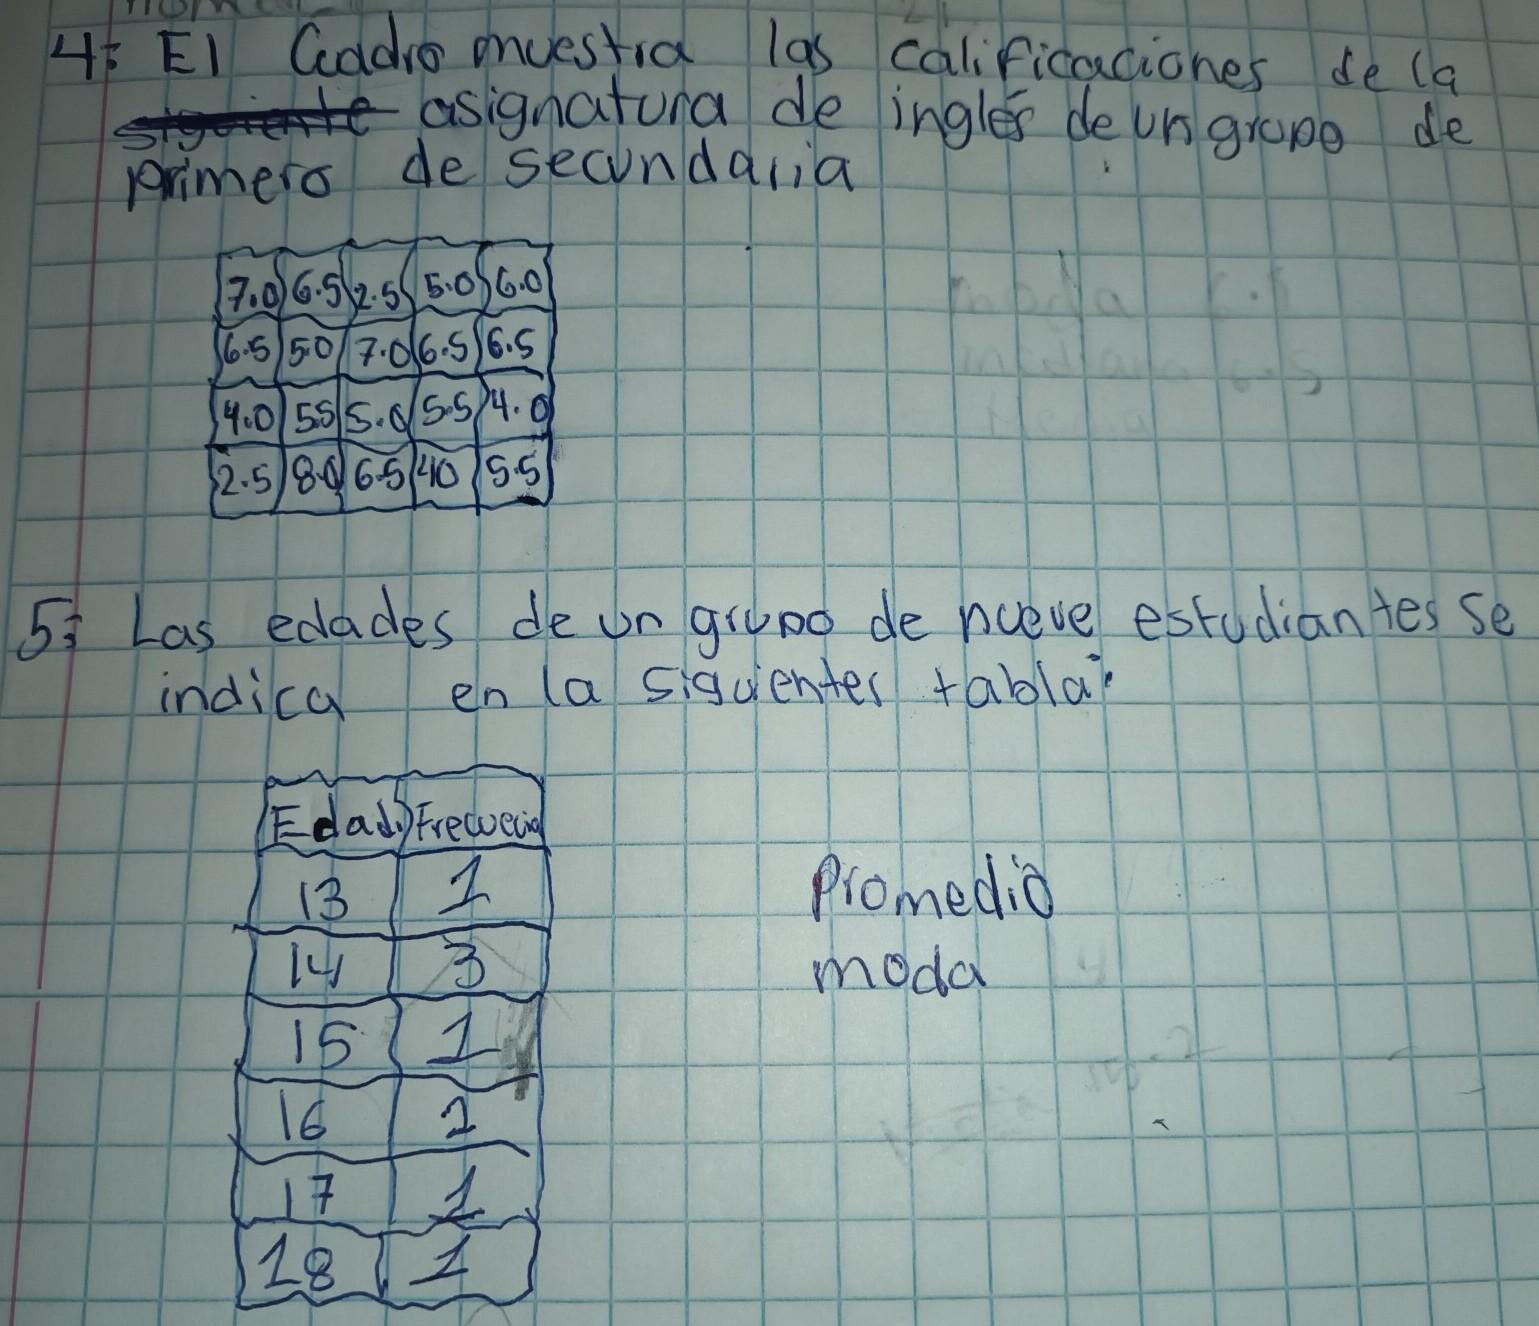 4: El Cuadro muestra las calificaciones de la
siguiente asignatura de inglés de un grupo de
primero de secundaria
7.0 6.5 2.5 5.0 6.0
6.5 5.0 7.0 6.5 6.5
4.0 5.5 5.0 5.5 4.0
2.5 8.0 6.5 40 5.5
5: Las edades de un grupo de nueve estudiantes se
indica en la siguientes tabla:
Edad. Frecuecia
13 1
14 3
15 1
16 2
17 1
18 1
Promedio
moda